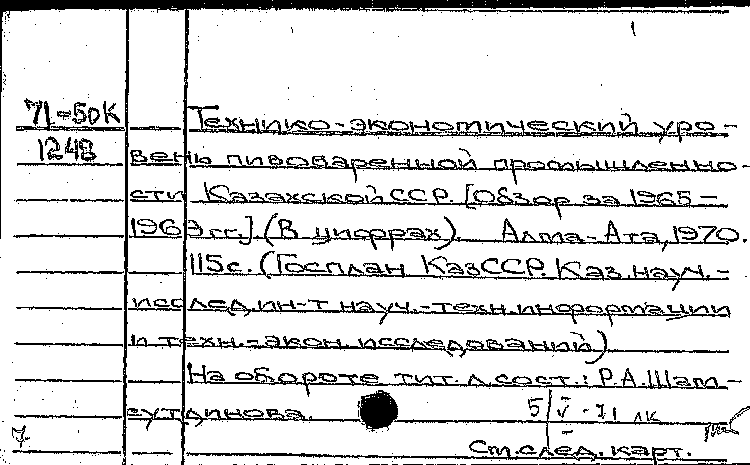 71-50К
1248
Технико-экономический уро-
вень пивоваренной промышленно-
сти Казахской ССР. [Обзор за 1965-
1969 гг.] (В цифрах). Алма-Ата, 1970.
115 с. (Госплан КазССР. Каз. науч.-
исслед. ин-т науч.-техн. информации
и техн.-экон. исследований)
На обороте тит. л. сост.: Р.А. Шам-
сутдинова.
5/V-71 лк
7
См. след. карт.